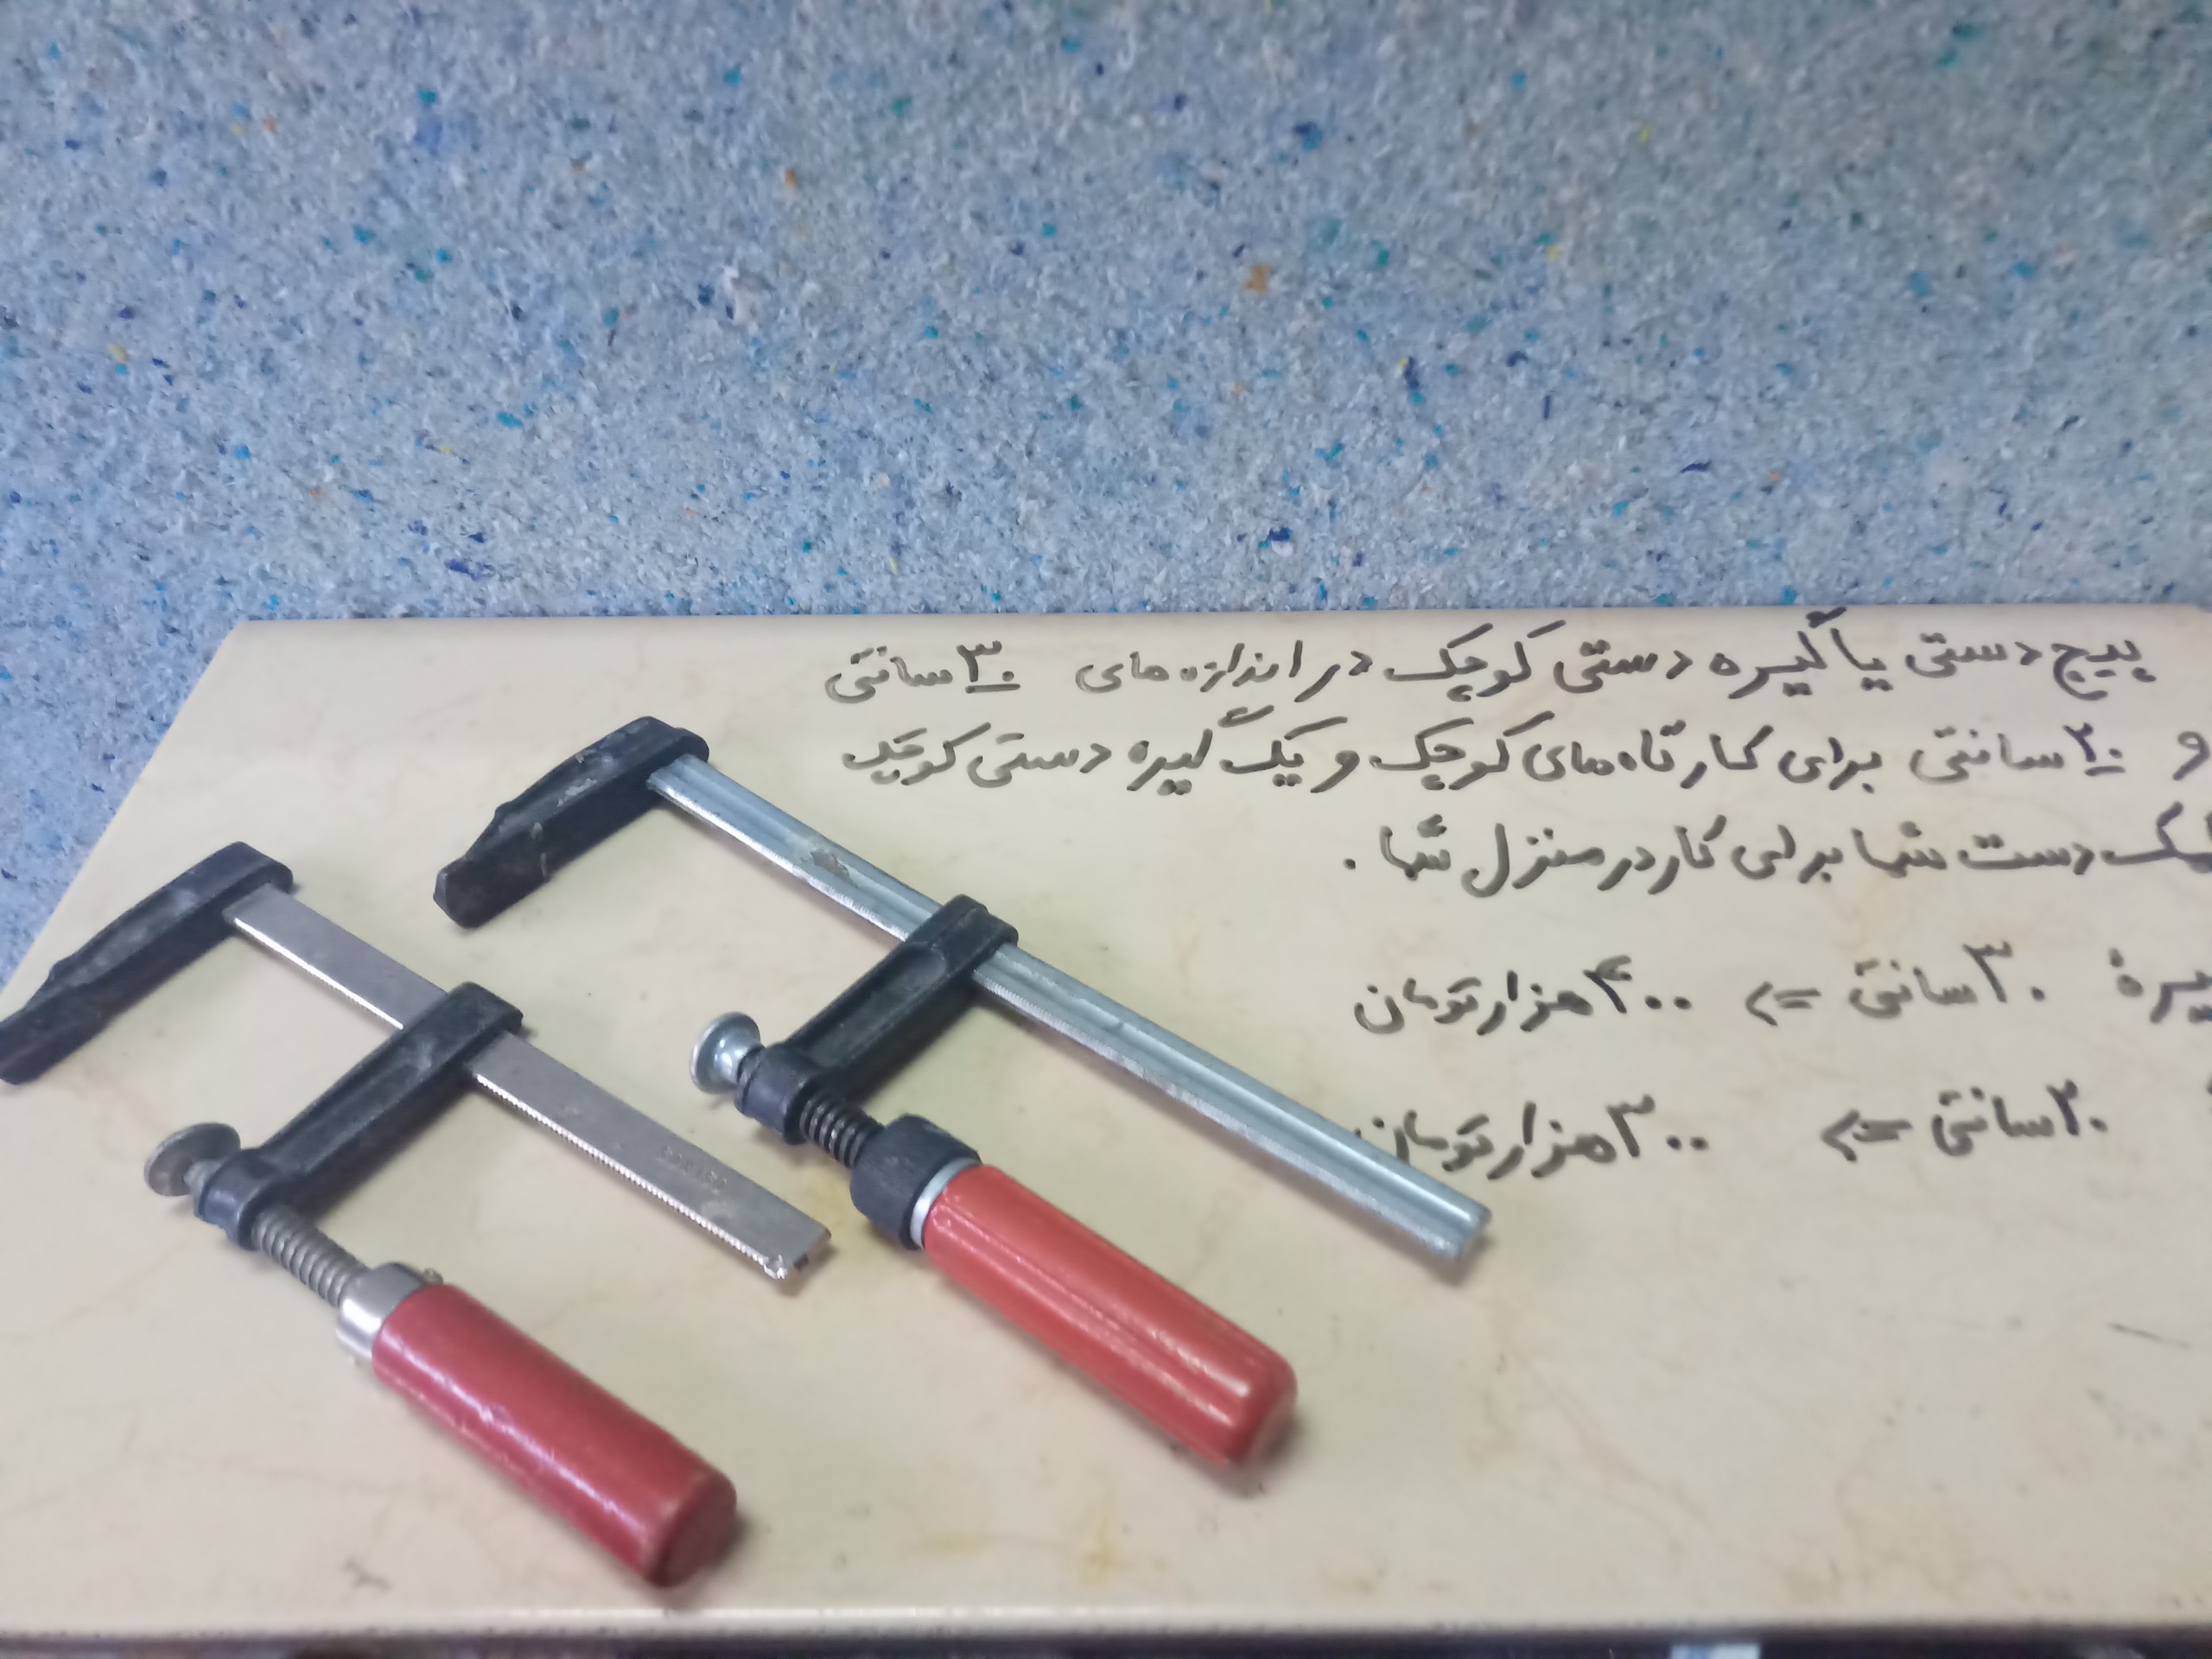 پیچ دستی یا گیره دستی کوچک در اندازه های ۳۰ سانتی
و ۲۰ سانتی برای کارگاه های کوچک و یک گیره دستی کوچک
کمک دست شما برای کار در منزل شما .
گیرهٔ ۳۰ سانتی <= ۴۰۰ هزار تومان
۲۰ سانتی <= ۳۰۰ هزار تومان